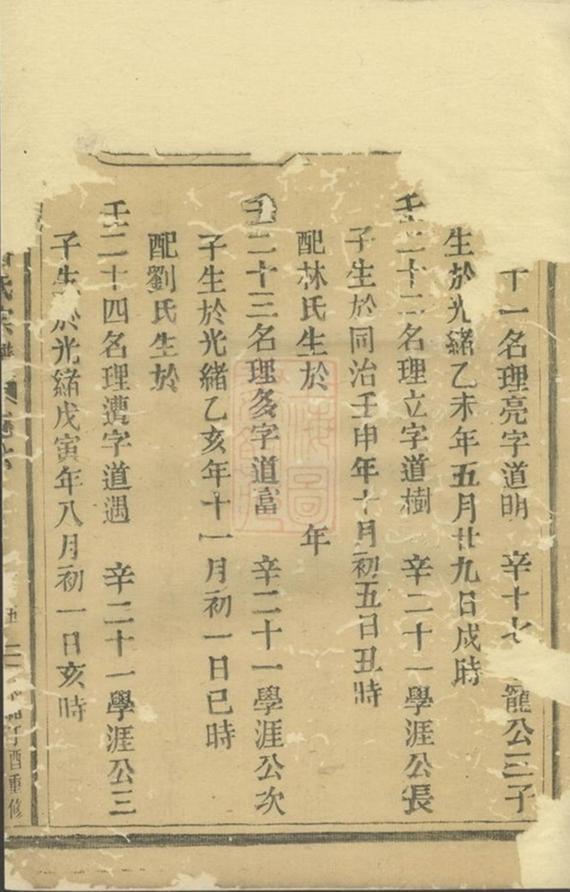 十一名理亮字道明 辛十七 寵公三子
生於光緒乙未年五月廿九日戌時
壬二十二名理立字道樹 辛二十一學涯公長
子生於同治壬申年十月初五日丑時
配林氏生於 年
壬二十三名理多字道富 辛二十一學涯公次
子生於光緒乙亥年十一月初一日巳時
配劉氏生於
壬二十四名理遭字道遇 辛二十一學涯公三
子生於光緒戊寅年八月初一日亥時
氏宗譜 丁酉重修